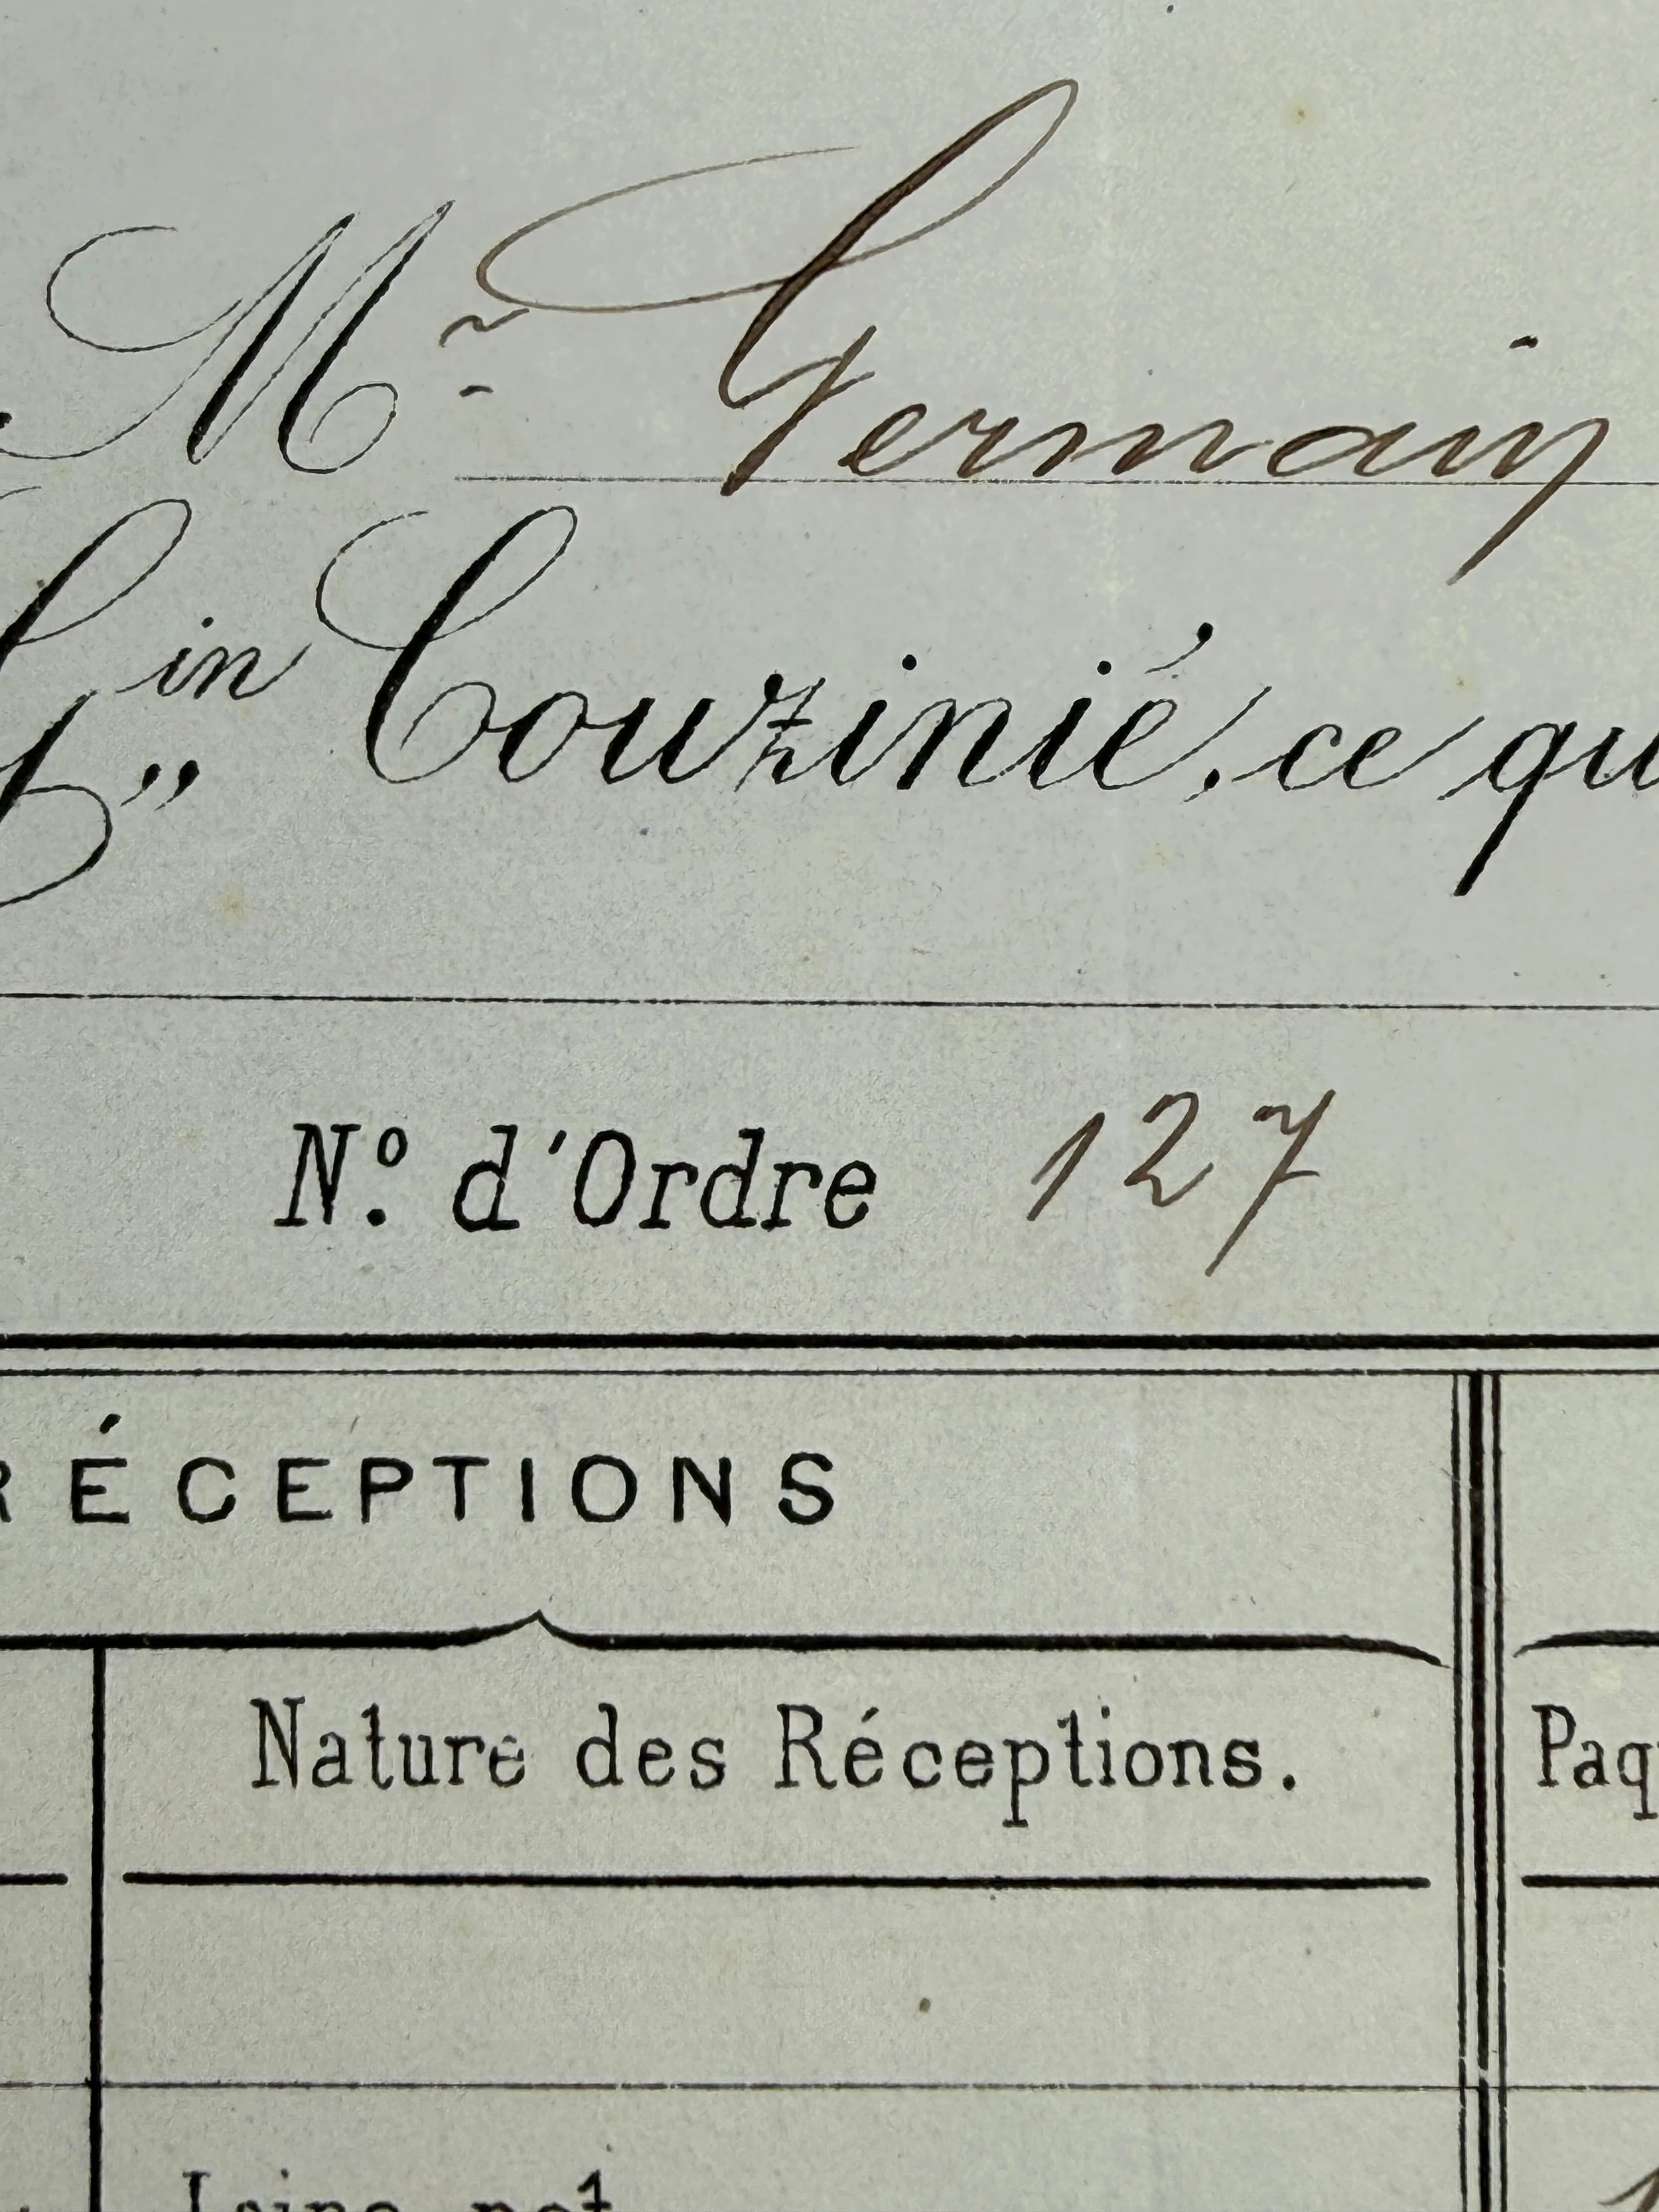 Mr Germain
in Couzinié, ce qu
N.º d'Ordre 127
RÉCEPTIONS
Nature des Réceptions.
Paq